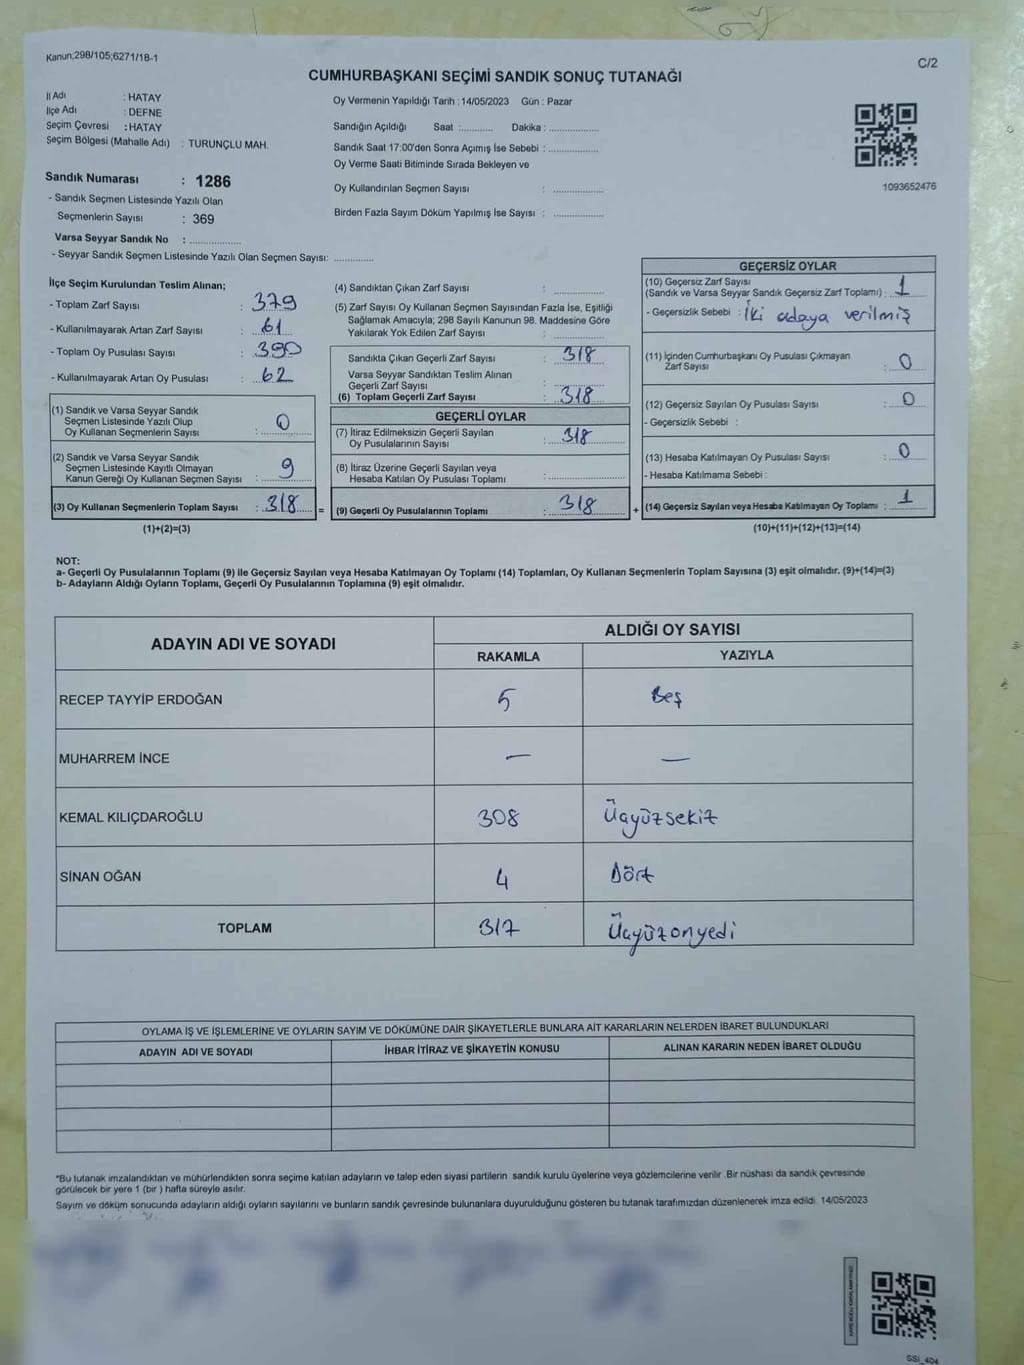 Kanun;298/105;6271/18-1
C/2
CUMHURBAŞKANI SEÇİMİ SANDIK SONUÇ TUTANAĞI
İl Adı : HATAY
İlçe Adı : DEFNE
Seçim Çevresi : HATAY
Seçim Bölgesi (Mahalle Adı) : TURUNÇLU MAH.
Sandık Numarası : 1286
- Sandık Seçmen Listesinde Yazılı Olan
Seçmenlerin Sayısı : 369
Varsa Seyyar Sandık No : ................
- Seyyar Sandık Seçmen Listesinde Yazılı Olan Seçmen Sayısı: ............
Oy Vermenin Yapıldığı Tarih : 14/05/2023 Gün : Pazar
Sandığın Açıldığı Saat :........... Dakika : ................
Sandık Saat 17:00'den Sonra Açımış İse Sebebi : ................
Oy Verme Saati Bitiminde Sırada Bekleyen ve
Oy Kullandırılan Seçmen Sayısı : ................
Birden Fazla Sayım Döküm Yapılmış İse Sayısı : ................
1093652476
İlçe Seçim Kurulundan Teslim Alınan;
- Toplam Zarf Sayısı : 379
- Kullanılmayarak Artan Zarf Sayısı : 61
- Toplam Oy Pusulası Sayısı : 390
- Kullanılmayarak Artan Oy Pusulası : 62
(1) Sandık ve Varsa Seyyar Sandık
Seçmen Listesinde Yazılı Olup
Oy Kullanan Seçmenlerin Sayısı : 0
(2) Sandık ve Varsa Seyyar Sandık
Seçmen Listesinde Kayıtlı Olmayan
Kanun Gereği Oy Kullanan Seçmen Sayısı : 9
(3) Oy Kullanan Seçmenlerin Toplam Sayısı : 318 =
(1)+(2)=(3)
(4) Sandıktan Çıkan Zarf Sayısı : ................
(5) Zarf Sayısı Oy Kullanan Seçmen Sayısından Fazla İse, Eşitliği
Sağlamak Amacıyla; 298 Sayılı Kanunun 98. Maddesine Göre
Yakılarak Yok Edilen Zarf Sayısı : ................
Sandıkta Çıkan Geçerli Zarf Sayısı : 318
Varsa Seyyar Sandıktan Teslim Alınan
Geçerli Zarf Sayısı : ................
(6) Toplam Geçerli Zarf Sayısı : 318
GEÇERLİ OYLAR
(7) İtiraz Edilmeksizin Geçerli Sayılan
Oy Pusulalarının Sayısı : 318
(8) İtiraz Üzerine Geçerli Sayılan veya
Hesaba Katılan Oy Pusulası Toplamı : ................
(9) Geçerli Oy Pusulalarının Toplamı : 318 +
GEÇERSİZ OYLAR
(10) Geçersiz Zarf Sayısı
(Sandık ve Varsa Seyyar Sandık Geçersiz Zarf Toplamı) : 1
- Geçersizlik Sebebi : İki adaya verilmiş
(11) İçinden Cumhurbaşkanı Oy Pusulası Çıkmayan
Zarf Sayısı : 0
(12) Geçersiz Sayılan Oy Pusulası Sayısı : 0
- Geçersizlik Sebebi :
(13) Hesaba Katılmayan Oy Pusulası Sayısı : 0
- Hesaba Katılmama Sebebi :
(14) Geçersiz Sayılan veya Hesaba Katılmayan Oy Toplamı : 1
(10)+(11)+(12)+(13)=(14)
NOT:
a- Geçerli Oy Pusulalarının Toplamı (9) ile Geçersiz Sayılan veya Hesaba Katılmayan Oy Toplamı (14) Toplamları, Oy Kullanan Seçmenlerin Toplam Sayısına (3) eşit olmalıdır. (9)+(14)=(3)
b- Adayların Aldığı Oyların Toplamı, Geçerli Oy Pusulalarının Toplamına (9) eşit olmalıdır.
ADAYIN ADI VE SOYADI
ALDIĞI OY SAYISI
RAKAMLA YAZIYLA
RECEP TAYYİP ERDOĞAN 5 Beş
MUHARREM İNCE — —
KEMAL KILIÇDAROĞLU 308 Üçyüzsekiz
SİNAN OĞAN 4 Dört
TOPLAM 317 Üçyüzonyedi
OYLAMA İŞ VE İŞLEMLERİNE VE OYLARIN SAYIM VE DÖKÜMÜNE DAİR ŞİKAYETLERLE BUNLARA AİT KARARLARIN NELERDEN İBARET BULUNDUKLARI
ADAYIN ADI VE SOYADI İHBAR İTİRAZ VE ŞİKAYETİN KONUSU ALINAN KARARIN NEDEN İBARET OLDUĞU
*Bu tutanak imzalandıktan ve mühürlendikten sonra seçime katılan adayların ve talep eden siyasi partilerin sandık kurulu üyelerine veya gözlemcilerine verilir .Bir nüshası da sandık çevresinde
görülecek bir yere 1 (bir ) hafta süreyle asılır.
Sayım ve döküm sonucunda adayların aldığı oyların sayılarını ve bunların sandık çevresinde bulunanlara duyurulduğunu gösteren bu tutanak tarafımızdan düzenlenerek imza edildi. 14/05/2023
SSİ_404